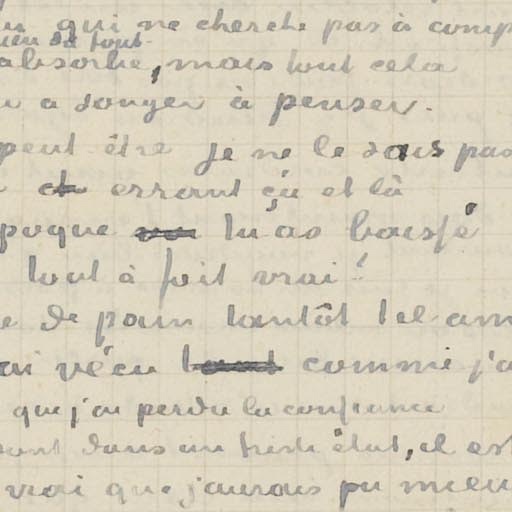 qui ne cherche pas à comp
de tout
absorbe, mais tout cela
a songer à penser.
peut être je ne le sais pas
errant çà et là
poque tu as baissé
tout à fait vrai!
de pain tantôt tel am
ai vécu tout comme j'a
que j'ai perdu la confiance
sont dans un triste état, il est
vrai que j'aurais pu mieu